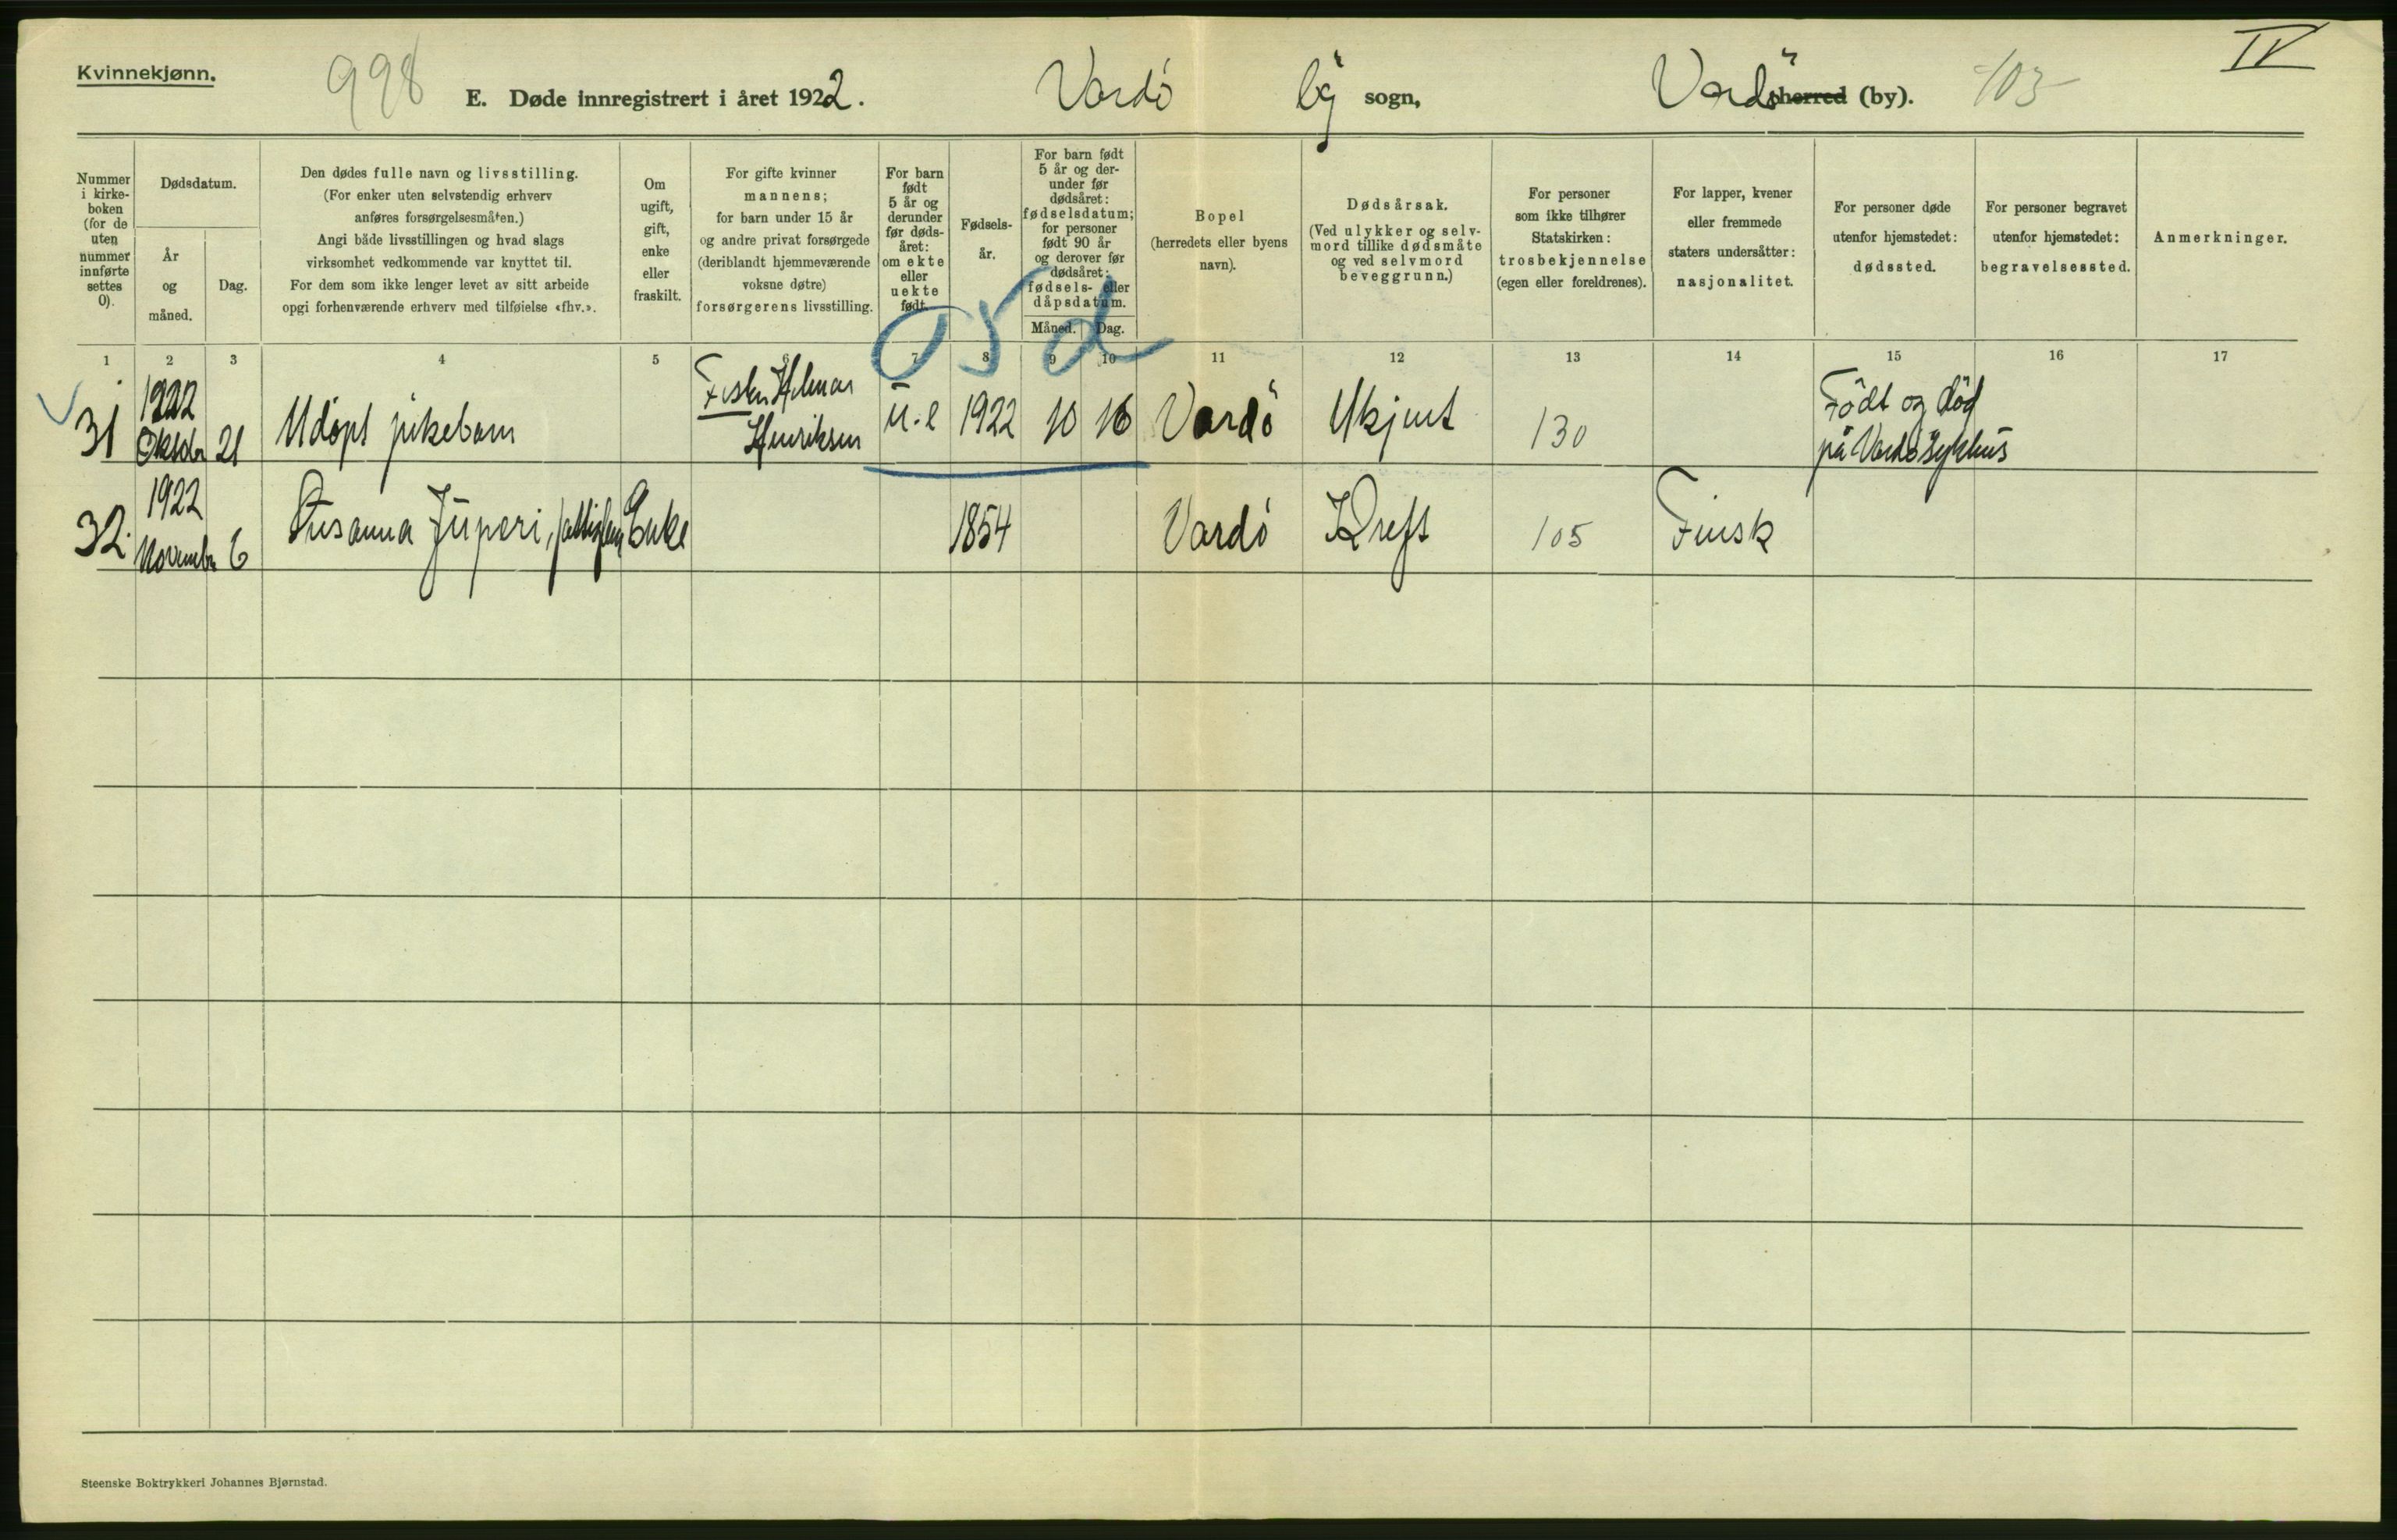 Kvinnekjønn.
998
E. Døde innregistrert i året 1922.
Vardö by sogn,
Vardö herred (by).
103
IV
Nummer i kirke-boken (for de uten nummer innførte settes 0).
Dødsdatum.
År og måned.
Dag.
Den dødes fulle navn og livsstilling.
(For enker uten selvstendig erhverv
anføres forsørgelsesmåten.)
Angi både livsstillingen og hvad slags
virksomhet vedkommende var knyttet til.
For dem som ikke lenger levet av sitt arbeide
opgi forhenværende erhverv med tilføielse «fhv.».
Om
ugift,
gift,
enke
eller
fraskilt.
For gifte kvinner
mannens;
for barn under 15 år
og andre privat forsørgede
(deriblandt hjemmeværende
voksne døtre)
forsørgerens livsstilling.
For barn
født
5 år og
derunder
før døds-
året:
om ekte
eller
uekte
født.
Fødsels-
år.
For barn født
5 år og der-
under før
dødsåret:
fødselsdatum;
for personer
født 90 år
og derover før
dødsåret:
fødsels- eller
dåpsdatum.
Måned. Dag.
Bopel
(herredets eller byens
navn).
Dødsårsak.
(Ved ulykker og selv-
mord tillike dødsmåte
og ved selvmord
beveggrunn.)
For personer
som ikke tilhører
Statskirken:
trosbekjennelse
(egen eller foreldrenes).
For lapper, kvener
eller fremmede
staters undersåtter:
nasjonalitet.
For personer døde
utenfor hjemstedet:
dødssted.
For personer begravet
utenfor hjemstedet:
begravelsessted.
Anmerkninger.
1 2 3 4 5 6 7 8 9 10 11 12 13 14 15 16 17
05d
31 1922 Oktobr 21 Udöpt pikebarn Fisker Hilmar Henriksen u.e 1922 10 16 Vardö Ukjent 130 Födt og död på Vardö sykhus
32. 1922 November 6 Susanna Juperi, fattiglem Enke 1854 Vardö Kreft 105 Finsk
Steenske Boktrykkeri Johannes Bjørnstad.